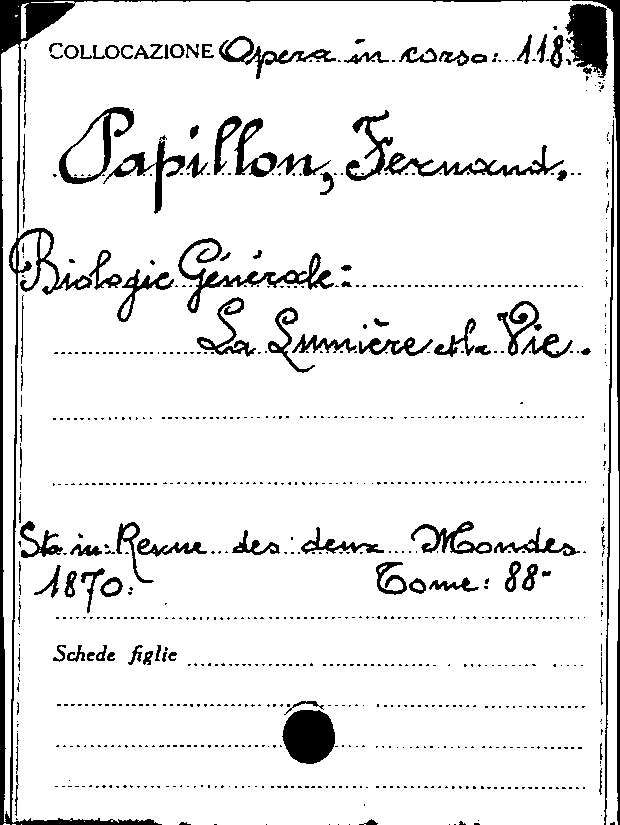 COLLOCAZIONE Opera in corso: 118.
Papillon, Fernand.
Biologie Générale:
La Lumière et la Vie.
Sta in: Revue des deux Mondes
1870. Tome: 88º
Schede figlie